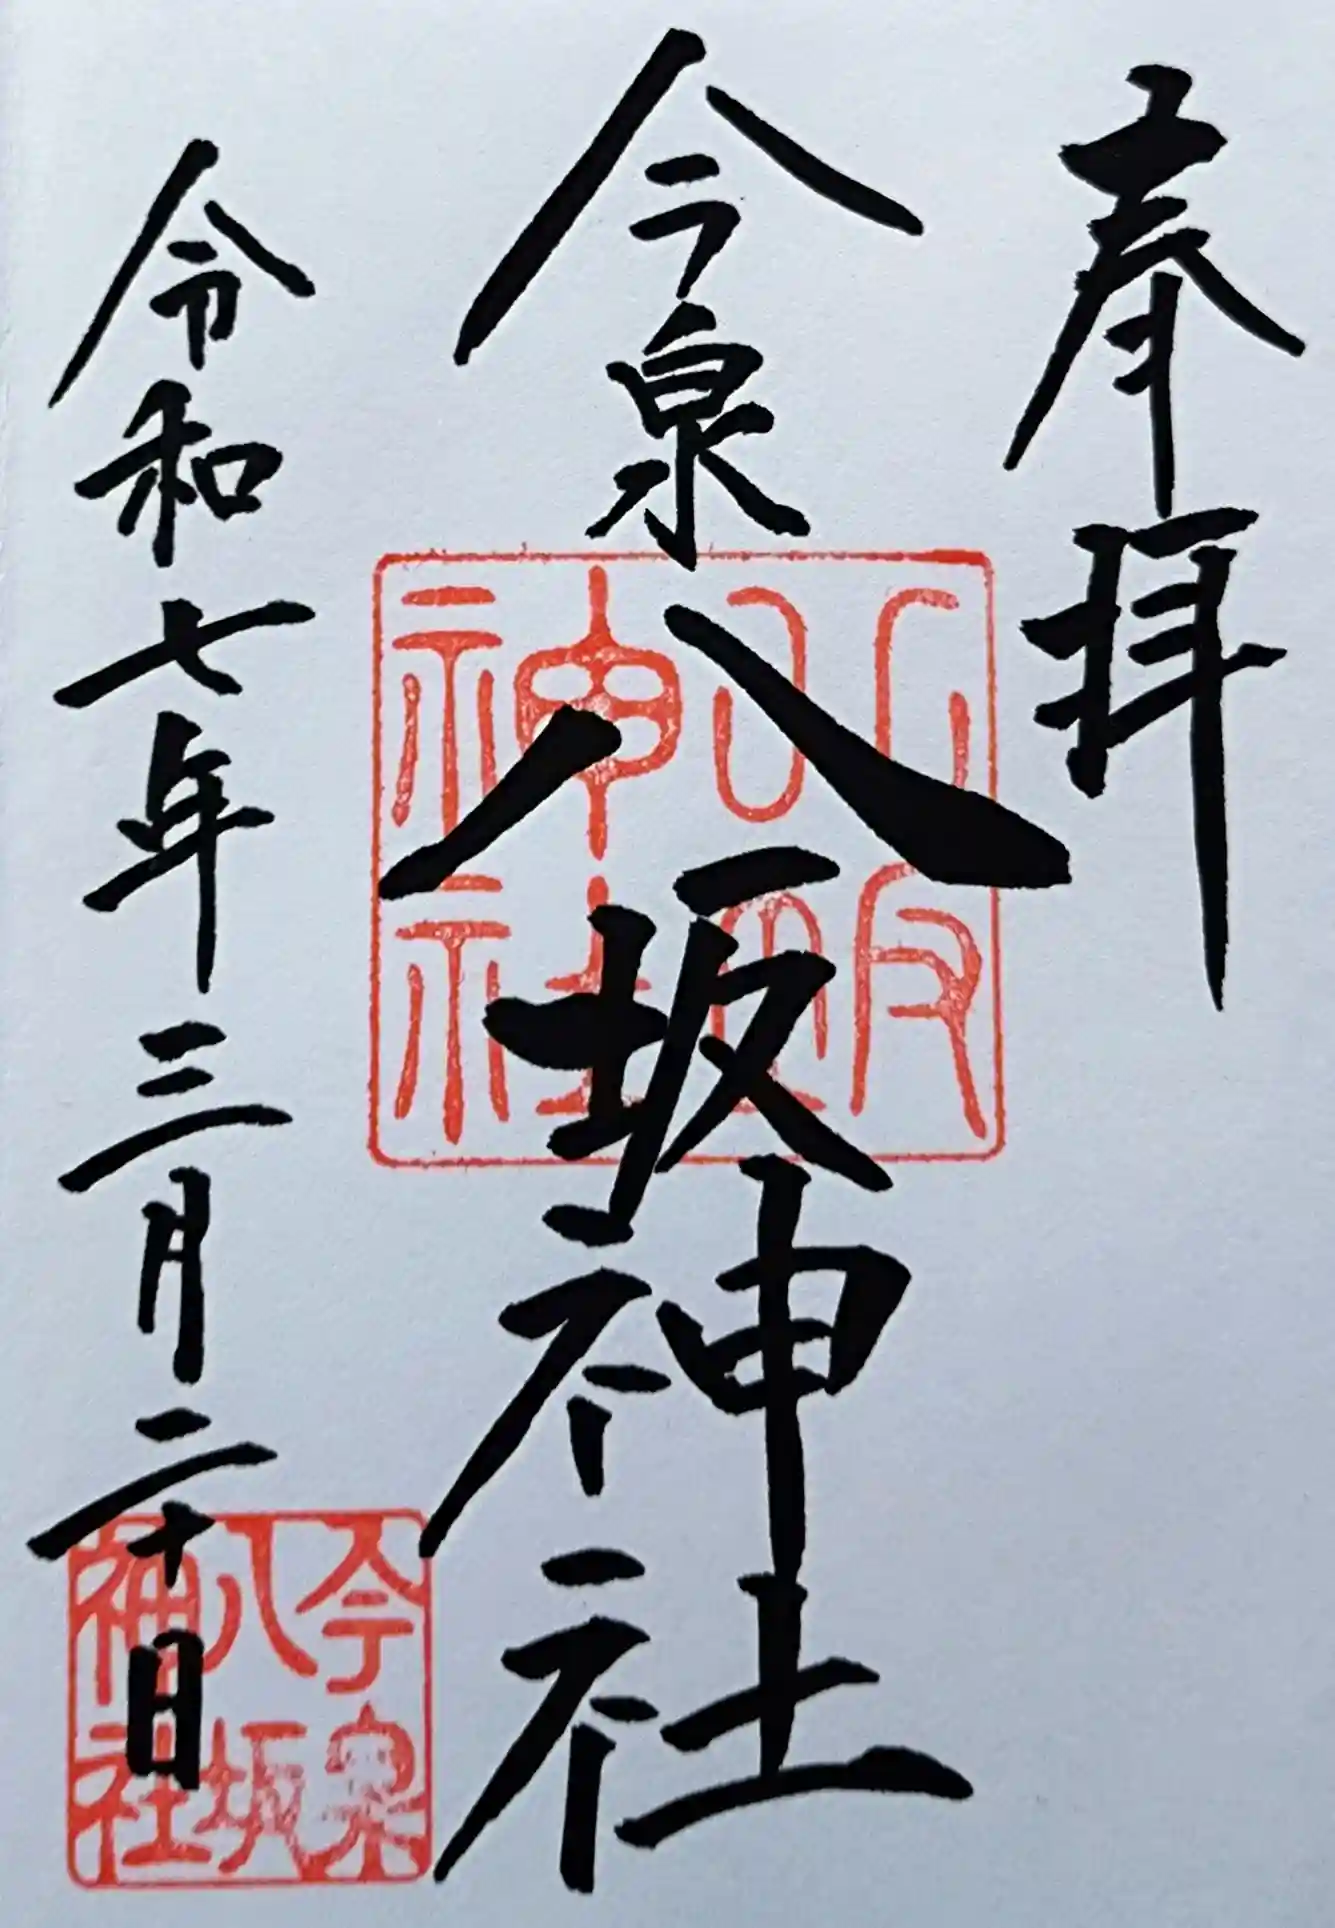 奉拝
今泉八坂神社
八坂神社
令和七年三月二十日
今泉八坂神社